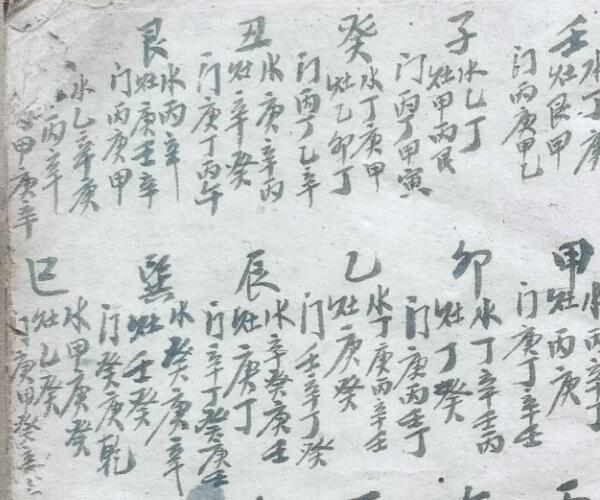 壬
水丁庚
灶艮甲
门丙庚甲乙
子
水乙丁
灶甲丙艮
门丙丁甲寅
癸
水丁庚甲
灶乙卯丁
门丙丁乙辛
丑
水庚辛丙
灶辛癸
门庚丁丙午
艮
水丙辛
灶庚壬辛
门丙庚甲
水乙辛庚
丙辛
甲庚辛
甲
水丙辛丁
灶丙庚
门庚丁辛壬
卯
水丁辛壬丙
灶丁癸
门庚丙壬丁
乙
水丁庚丙辛壬
灶庚癸
门壬辛丁癸
辰
水辛癸庚壬
灶庚丁
门辛丁癸庚壬
巽
水癸癸庚辛
灶壬癸
门癸庚乾
巳
水甲庚癸
灶乙癸
门庚甲癸